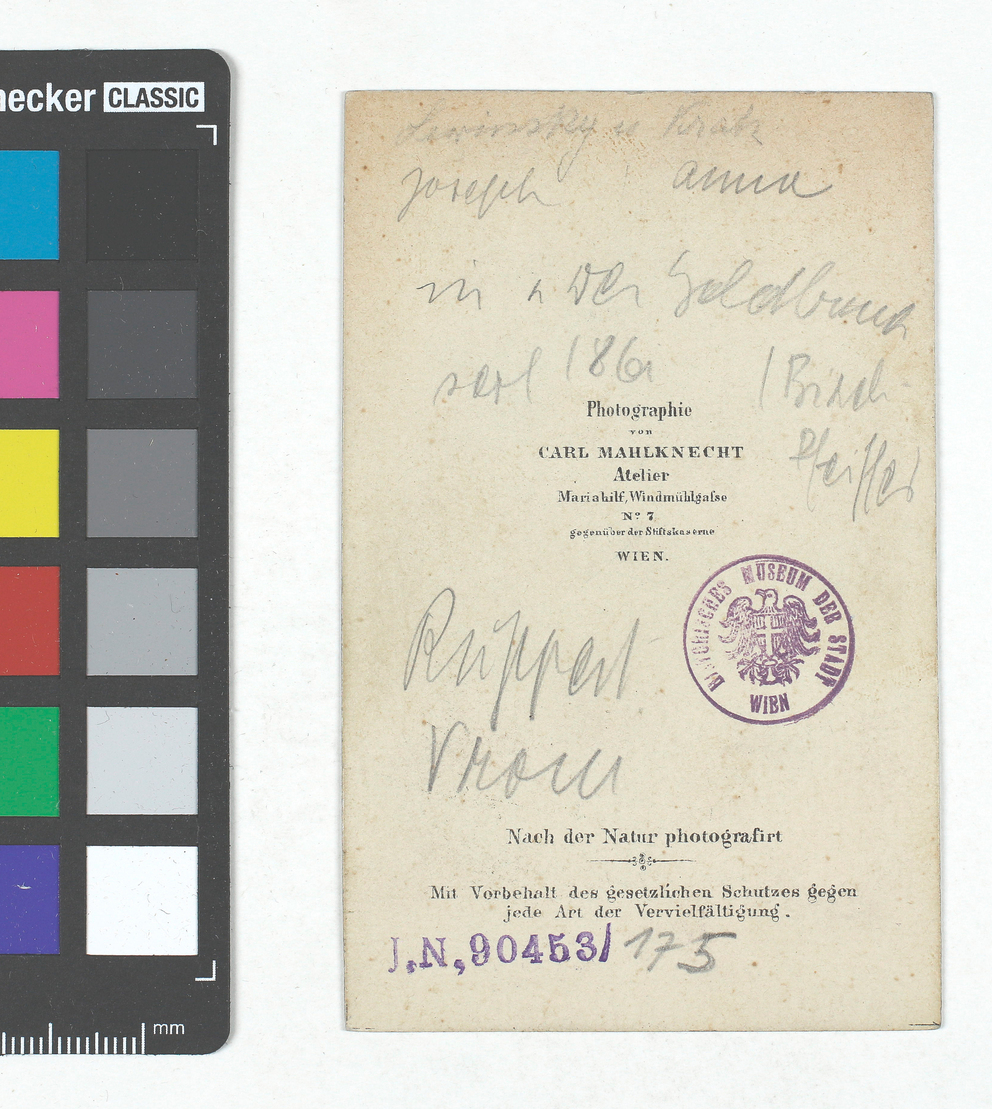 ecker CLASSIC
Lewinsky u Kratz
Joseph anna
in
186
Photographie
von
CARL MAHLKNECHT
Atelier
Mariahilf, Windmühlgasse
Nº 7
gegenüber der Stiftskaserne
WIEN.
Birch
Pfeiffer
HISTORISCHES MUSEUM DER STADT
WIEN
Nach der Natur photografirt
Mit Vorbehalt des gesetzlichen Schutzes gegen
jede Art der Vervielfältigung.
J.N,90453/ 175
mm